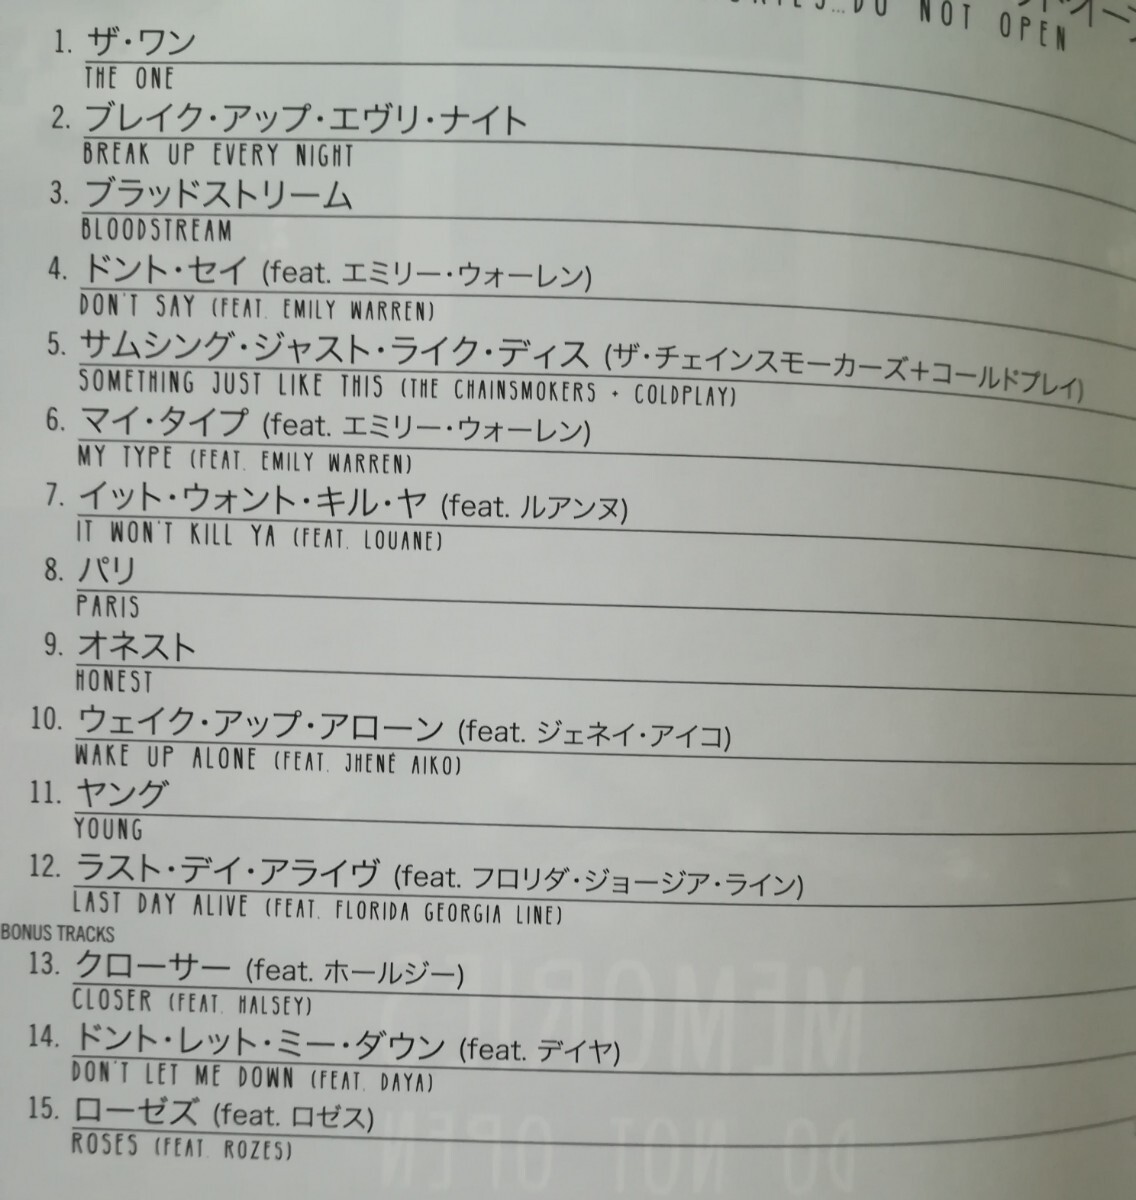 DO NOT OPEN
1. ザ・ワン
THE ONE
2. ブレイク・アップ・エヴリ・ナイト
BREAK UP EVERY NIGHT
3. ブラッドストリーム
BLOODSTREAM
4. ドント・セイ (feat. エミリー・ウォーレン)
DON'T SAY (FEAT. EMILY WARREN)
5. サムシング・ジャスト・ライク・ディス (ザ・チェインスモーカーズ+コールドプレイ)
SOMETHING JUST LIKE THIS (THE CHAINSMOKERS + COLDPLAY)
6. マイ・タイプ (feat. エミリー・ウォーレン)
MY TYPE (FEAT. EMILY WARREN)
7. イット・ウォント・キル・ヤ (feat. ルアンヌ)
IT WON'T KILL YA (FEAT. LOUANE)
8. パリ
PARIS
9. オネスト
HONEST
10. ウェイク・アップ・アローン (feat. ジェネイ・アイコ)
WAKE UP ALONE (FEAT. JHENÉ AIKO)
11. ヤング
YOUNG
12. ラスト・デイ・アライヴ (feat. フロリダ・ジョージア・ライン)
LAST DAY ALIVE (FEAT. FLORIDA GEORGIA LINE)
BONUS TRACKS
13. クローサー (feat. ホールジー)
CLOSER (FEAT. HALSEY)
14. ドント・レット・ミー・ダウン (feat. デイヤ)
DON'T LET ME DOWN (FEAT. DAYA)
15. ローゼズ (feat. ロゼス)
ROSES (FEAT. ROZES)